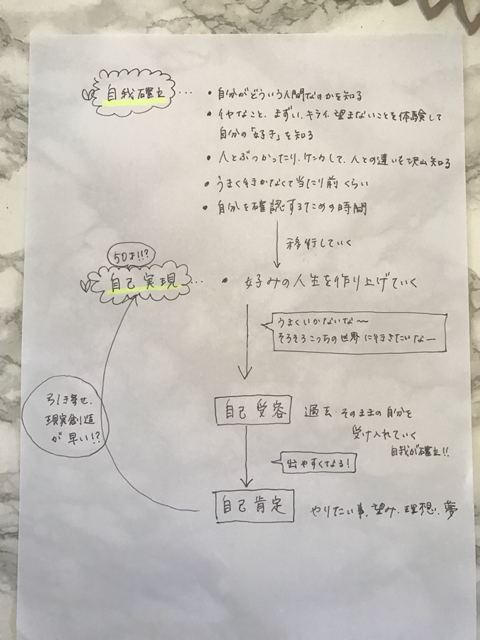 自我確立 ・・・
・自分がどういう人間なのかを知る
・イヤなこと、まずい、キライ、望まないことを体験して
自分の「好き」を知る
・人とぶつかったり、ケンカして、人との違いを沢山知る
・うまく行かなくて当たり前くらい
・自分を確認するための時間
移行していく
50才!!?
自己実現 ・・・
・好みの人生を作り上げていく
うまくいかないな〜
そろそろこっちの世界に行きたいなー
引き寄せ、
現実創造
が早い!?
自己受容
過去、そのままの自分を
受け入れていく
自我が確立!!
出やすくなる!
自己肯定
やりたい事、望み、理想、夢